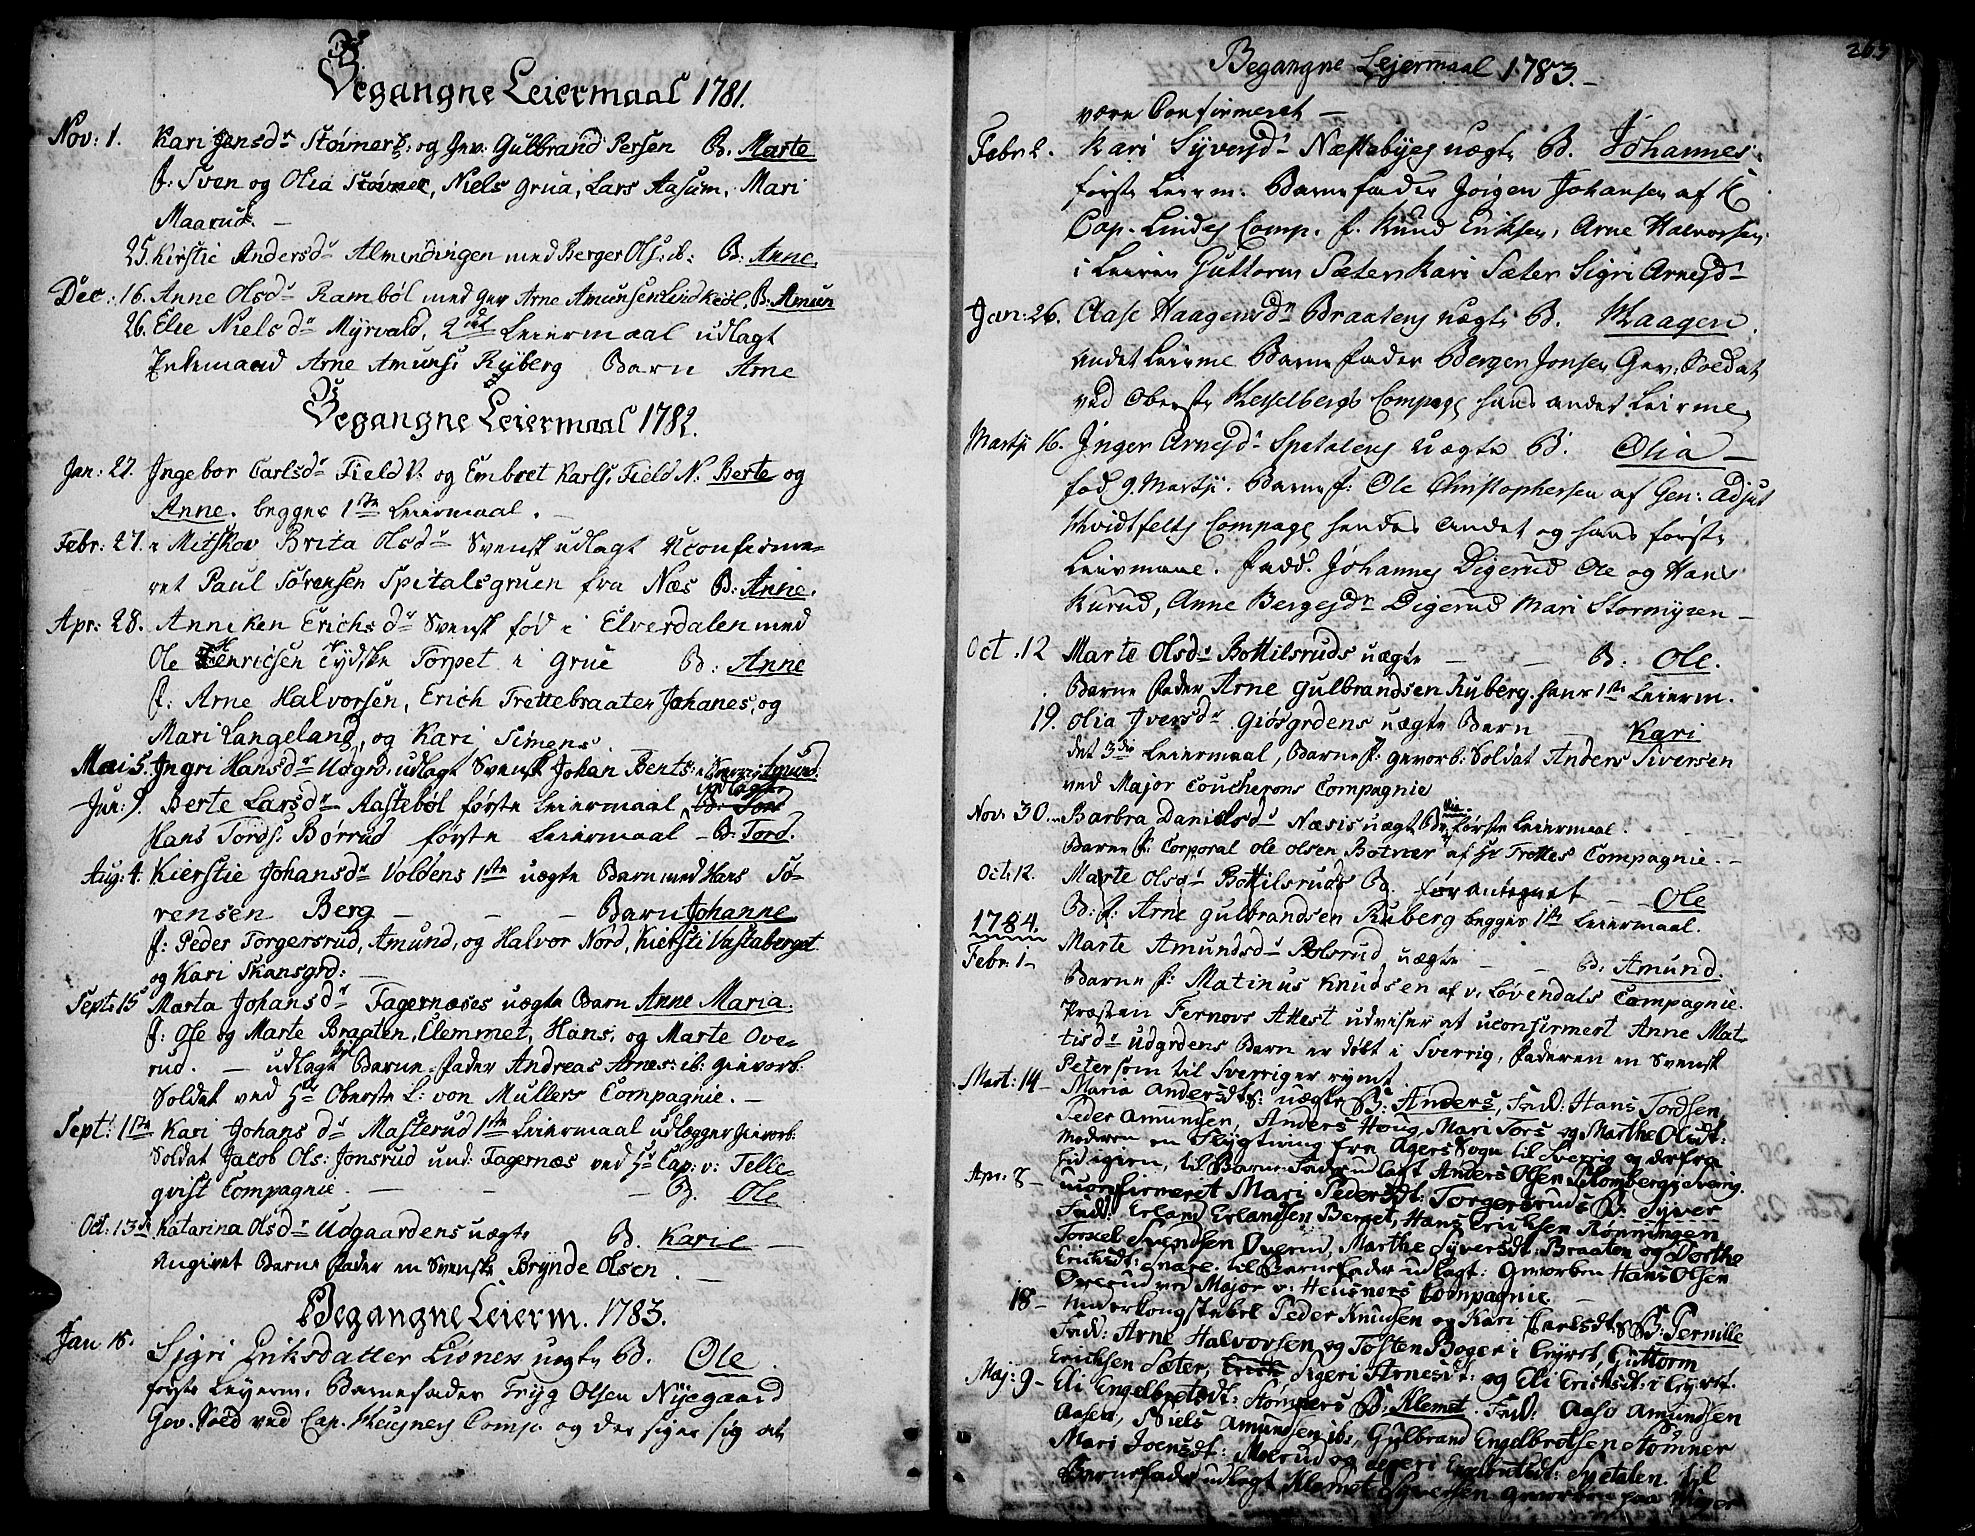 Begangne Leiermaal 1781.
Nov: 1. Kari Jensdr Støvner, og Gev: Gulbrand Persen B. Marte
f: Sven og Olia Støvner, Niels Grua, Lars Aasum, Mari
Maarud. —
25. Kirstie Andersdr Almindingen med Berger Ols: ib: B: Anne.
Dec: 16. Anne Olsdr Rambøl med gev Arne Amunsen Lindkiøl, B: Amun
26. Elie Nielsdr Myrvald, 2det Leiermaal udlagt
Enkemand Arne Amuns: Ryberg Barn Arne
Begangne Leiermaal 1782.
Jan: 27. Ingebor Carlsdr Field N: og Embret Karls: Field N: Berte og
Anne. begges 1ste Leiermaal. —
Febr: 27. Mitskov Brita Olsdr Svensk udlagt Uconfirme-
ret Paul Sørensen Spitalsgruen fra Næs B: Anne.
Apr: 28. Anniken Erichsdr Svensk fød i Elverdalen med
Ole Henricsen Tydske Torpet i Grue B: Anne
f: Arne Halvorsen, Erich Trettebraaten Johanes, og
Mari Langeland, og Kari Simens.
Mai 5. Ingri Hansdr Udgrd: udlagt Svensk Johan Bents:
Jun: 9. Berte Larsdr Aastebøl første Leiermaal udlagte
Hans Tords: Børrud første Leiermaal — B: Tord.
Aug: 4. Kierstie Johansdr Voldens 1ste uægte Barn med Hans Sø-
rensen Berg — — — Barn Johanne
f: Peder Torgersrud, Amund, og Halvor Nord, Kiersti Vastaberget
og Kari Skansgrd: —
Sept: 15 Marta Johansdr Fagernæses uægte Barn Anne Maria.
f: Ole og Marte Braaten, Clemmet, Hans, og Marte Ove-
rud. — udlagt Barne-Fader Andreas Arnes: ib: gievorb:
Soldat ved Hr Oberste L: von Mullers Compagnie. —
Sept: 1ste Kari Johansdr Masterud 1ste Leiermaal udlægger Gievorb:
Soldat Jacob Ols: Jonsrud und: Fagernæs ved Hr Cap: v: Telle-
qvist Compagnie. — — — B. Ole
Oct: 13de Katarina Olsdr Udgaardens uægte B. Karie —
Angivet Barne Fader en Svenske Brynde Olsen. —
Begangne Leierm. 1783.
Jan 18. Sigri Eriksdatter Lisners uegte B. Ole.
første Leyerm. Barnefader Tryg Olsen Nyegaard
Gev. Sold ved Cap. Heusners Comp: og der siger sig at
265
Begangne Lejermaal 1783. —
være Confirmeret —
Febr 2. Kari Syversdr Næstebyes uægte B. Johannes.
første Leierm. Barnefader Jörgen Johansen af K
Cap. Lindes Comp. f. Knud Eriksen, Arne Halvorsen
i Leiren Guttorm Sæter Kari Sæter Sigri Arnesdr
Jan: 26. Aase Haagensdr Braatens uægte B. Haagen.
andet Leierme Barnefader Berger Jonsen Gev. Soldat
ved Oberste Hesselbergs Compage hans andet Leierme
Martji 16. Inger Arnesdr Spetalens Uægte B. Olia —
fød 9. Martji. Barnef: Ole Christophersen af Gen: Adjut
Hvidtfelts Compage hendes andet og hans første
Leiermaae. Fadd. Johannes Digerud Ole og Hans
Kurud, Anne Bergesdr Digerud Mari Stormyren —
Oct. 12 Marte Olsdr Bottilsruds uægte — — B: Ole.
Barne Fader Arne Gulbrandsen Ryberg, hans 1ste Leierm.
19. Olia Iversdr Giösgrdens uægte Barn — Kari
det 3die Leiermaal, Barne f: gevorb: Soldat Anders Siversen
ved Major Coucherons Compagnie
Nov: 30. Barbra Danielsdr Næsis uægte B første Leiermaal.
Barne f: Corporal Ole Olsen Botner af Hr Trottes Compagnie. —
Oct: 12. Marte Olsdr Bottilsruds B. för antegnet — Ole
B: f: Arne Gulbrandsen Ryberg begges 1ste Leiermaal.
1784.
Febr: 1 — Marte Amundsdr Rolsrud uægte — — B. Amund.
Barne f: Matinus Knudsen af v. Løvendals Compagnie.
Præsten Fernovs Attest udviser at uconfirmert Anne Mat-
tisdr Udgrdens Barn er døbt i Sverrig, Faderen en Svensk
Peter som til Sverriger rymt.
Mart: 14 — Maria Andersdt: uægte B: Anders, Fad: Hans Tordsen,
Peder Amundsen, Anders Houg, Mari Tors og Marthe Olsdt:
Moderen en Flygtning fra Agers Sogn til Sverrig og derfra
hid igien, til Barne Fader udlagt Anders Olsen Blomberg i Sverrig.
Apr: 8 — uconfirmeret Mari Pedersdt: Torgersruds B: Syver
Fad: Erland Erlandsen Berget, Hans Ericksen Rønningen
Torkel Svendsen Overud, Marthe Syversdt: Braaten og Dorthe
Ericksdt: til Barnefader udlagt: Gevorben Hans Olsen
Overud ved Major v: Heusners Compagnie. —
18 — Underkongstabel Peder Knudsen og Kari Carlsdt: B: Pernille
Fad: Arne Halvorsen og Tosten Boger i Leyret, Guttorm
Ericksen Sæter, Sigeri Arnesdt: og Eli Ericksdt: i Leyret.
Maj: 9 — Eli Engelbretsdt: Stømners B: Klemet. Fad: Aaso Amundsen
Aasen, Niels Amundsen ib:, Gulbrand Engelbretsen Stømner
Mari Joensdt: Molrud og Engelbretsdt: Spetalen til
Barnefader udlagt Klemet Syversen gevorben paa